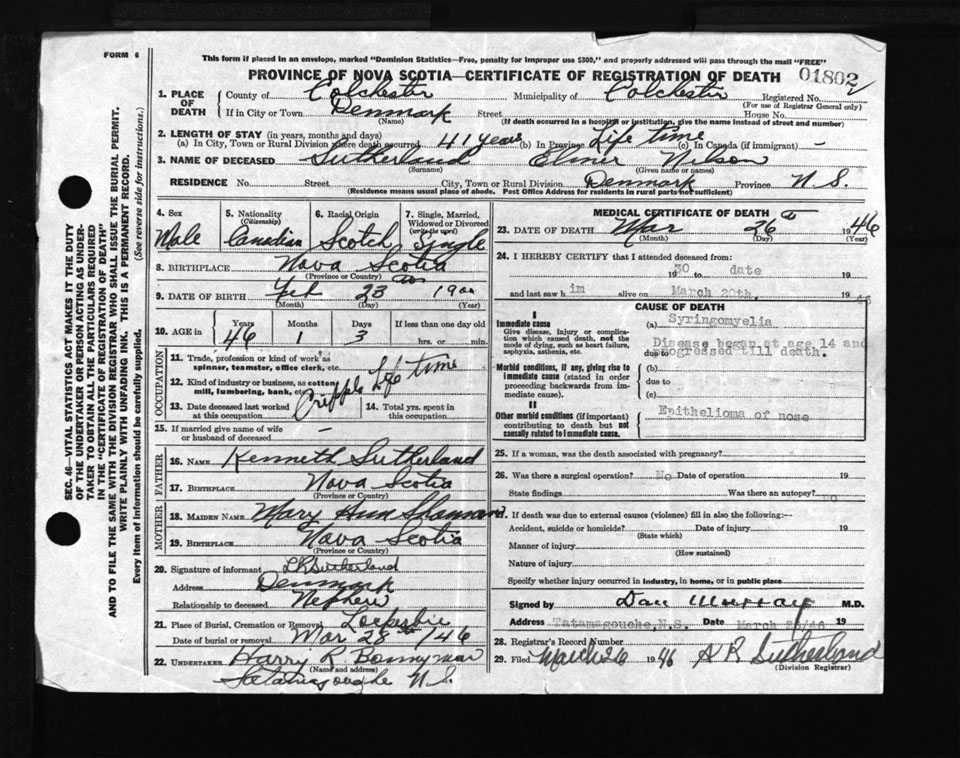 FORM 6
This form if placed in an envelope, marked "Dominion Statistics—Free, penalty for improper use $300," and properly addressed will pass through the mail "FREE"
PROVINCE OF NOVA SCOTIA—CERTIFICATE OF REGISTRATION OF DEATH
01802
1. PLACE OF DEATH
County of Colchester Municipality of Colchester Registered No.
(For use of Registrar General only)
If in City or Town Denmark Street House No.
(Name) (If death occurred in a hospital or institution, give the name instead of street and number)
2. LENGTH OF STAY (in years, months and days)
(a) In City, Town or Rural Division where death occurred 41 years (b) In Province Life time (c) In Canada (if immigrant) -
3. NAME OF DECEASED Sutherland Elmer Nilson
(Surname) (Given name or names)
RESIDENCE No. Street City, Town or Rural Division Denmark Province N.S.
(Residence means usual place of abode. Post Office Address for residents in rural parts not sufficient)
4. Sex 5. Nationality 6. Racial Origin 7. Single, Married, Widowed or Divorced
(Citizenship) (write the word)
Male Canadian Scotch Single
8. BIRTHPLACE Nova Scotia
(Province or Country)
9. DATE OF BIRTH Feb 23 1900
(Month) (Day) (Year)
10. AGE in Years Months Days If less than one day old
46 1 3 hrs. or min.
OCCUPATION
11. Trade, profession or kind of work as spinner, teamster, office clerk, etc.
12. Kind of industry or business, as cotton mill, lumbering, bank, etc.
Cripple Life time
13. Date deceased last worked at this occupation
14. Total yrs. spent in this occupation
15. If married give name of wife or husband of deceased -
FATHER
16. NAME Kenneth Sutherland
17. BIRTHPLACE Nova Scotia
(Province or Country)
MOTHER
18. MAIDEN NAME Mary Ann Shannan
19. BIRTHPLACE Nova Scotia
(Province or Country)
20. Signature of informant Sutherland
Address Denmark
Relationship to deceased Nephew
21. Place of Burial, Cremation or Removal Lockerbie
Date of burial or removal Mar 28th /46
22. UNDERTAKER Harry R Bonnyman
(Name and address)
Tatamagouche N.S.
MEDICAL CERTIFICATE OF DEATH
23. DATE OF DEATH Mar 26 1946
(Month) (Day) (Year)
24. I HEREBY CERTIFY that I attended deceased from:
1930 to date 19
and last saw him alive on March 20th. 1946
CAUSE OF DEATH
I
Immediate cause (a) Syringomyelia
Give disease, injury or complication which caused death, not the mode of dying, such as heart failure, asphyxia, asthenia, etc.
Disease began at age 14 and
due to progressed till death.
Morbid conditions, if any, giving rise to immediate cause (stated in order proceeding backwards from immediate cause).
(b)
due to
(c)
II
Other morbid conditions (if important) contributing to death but not causally related to immediate cause.
Epithelioma of nose
25. If a woman, was the death associated with pregnancy?
26. Was there a surgical operation? No Date of operation 19
State findings Was there an autopsy? no
27. If death was due to external causes (violence) fill in also the following:—
Accident, suicide or homicide? Date of injury 19
(State which)
Manner of injury
(How sustained)
Nature of injury
Specify whether injury occurred in industry, in home, or in public place
Signed by Dan Murray M.D.
Address Tatamagouche, N.S. Date March /46 19
28. Registrar's Record Number
29. Filed March 26 1946 Sutherland
(Division Registrar)
SEC. 46—VITAL STATISTICS ACT MAKES IT THE DUTY
OF THE UNDERTAKER OR PERSON ACTING AS UNDERTAKER TO OBTAIN ALL THE PARTICULARS REQUIRED
IN THE "CERTIFICATE OF REGISTRATION OF DEATH"
AND TO FILE THE SAME WITH THE DIVISION REGISTRAR WHO SHALL ISSUE THE BURIAL PERMIT.
WRITE PLAINLY WITH UNFADING INK. THIS IS A PERMANENT RECORD.
Every item of information should be carefully supplied. (See reverse side for instructions.)